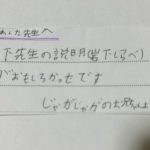 した先生へ
下先生の説明(岩下しらべ)
がおもしろかったです
じゃがじゃがの